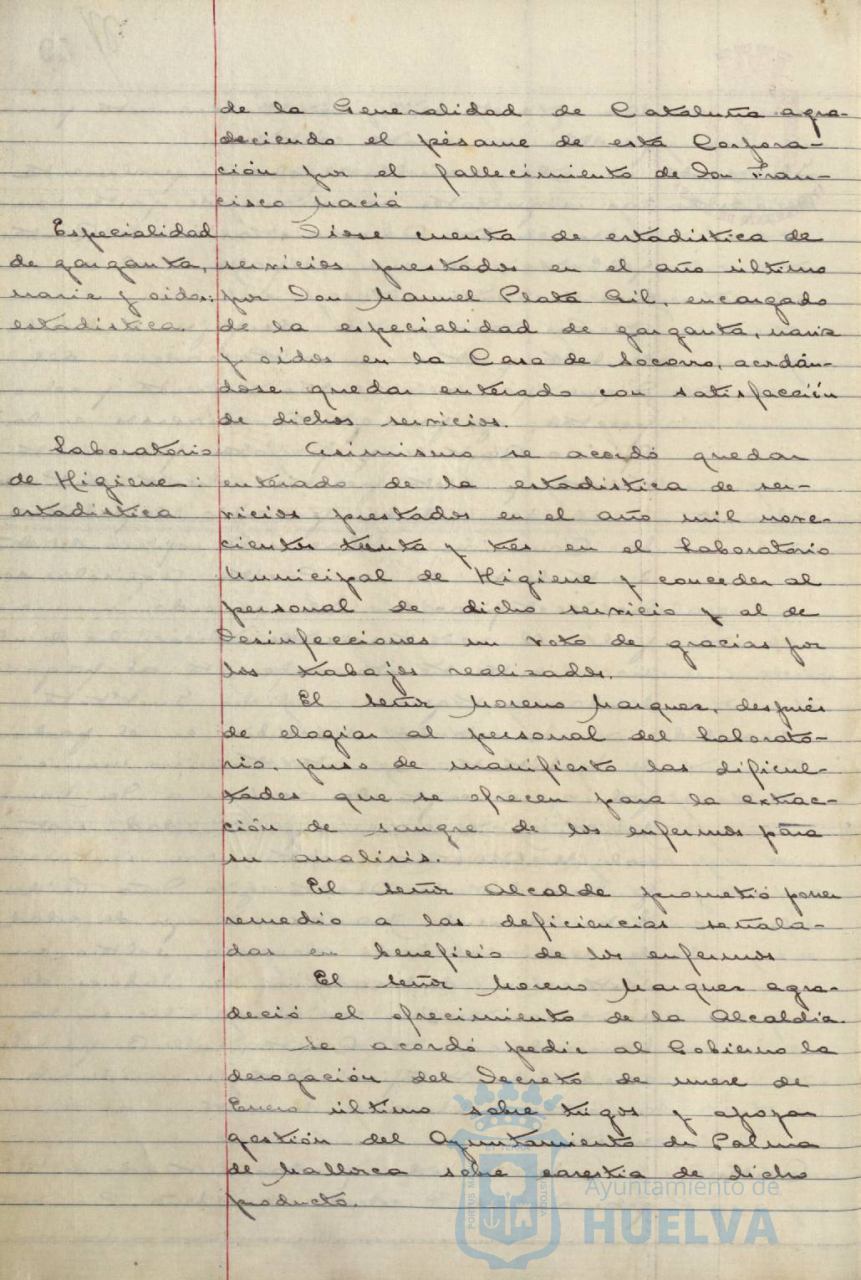 de la Generalidad de Cataluña agra-
deciendo el pésame de esta Corpora-
ción por el fallecimiento de Don Fran-
cisco Maciá
Especialidad
de garganta,
nariz y oidos:
estadística.
Diose cuenta de estadistica de
servicios prestados en el año último
por Don Manuel Plata Gil, encargado
de la especialidad de garganta, nariz
y oídos en la Casa de Socorro, acordán-
dose quedar enterado con satisfacción
de dichos servicios.
Laboratorio
de Higiene:
estadística
Asimismo se acordó quedar
enterado de la estadística de ser-
vicios prestados en el año mil nove-
cientos treinta y tres en el Laboratorio
Municipal de Higiene y conceder al
personal de dicho servicio y al de
Desinfecciones un voto de gracias por
los trabajos realizados.
El señor Moreno Marquez, después
de elogiar al personal del Laborato-
rio, puso de manifiesto las dificul-
tades que se ofrecen para la extrac-
ción de sangre de los enfermos para
su analisis.
El señor Alcalde prometió poner
remedio a las deficiencias señala-
das en beneficio de los enfermos
El señor Moreno Marquez agra-
deció el ofrecimiento de la Alcaldia.
Se acordó pedir al Gobierno la
derogación del Decreto de nueve de
Enero último sobre trigos y apoyar
gestión del Ayuntamiento de Palma
de Mallorca sobre carestia de dicho
producto.
Ayuntamiento de
HUELVA